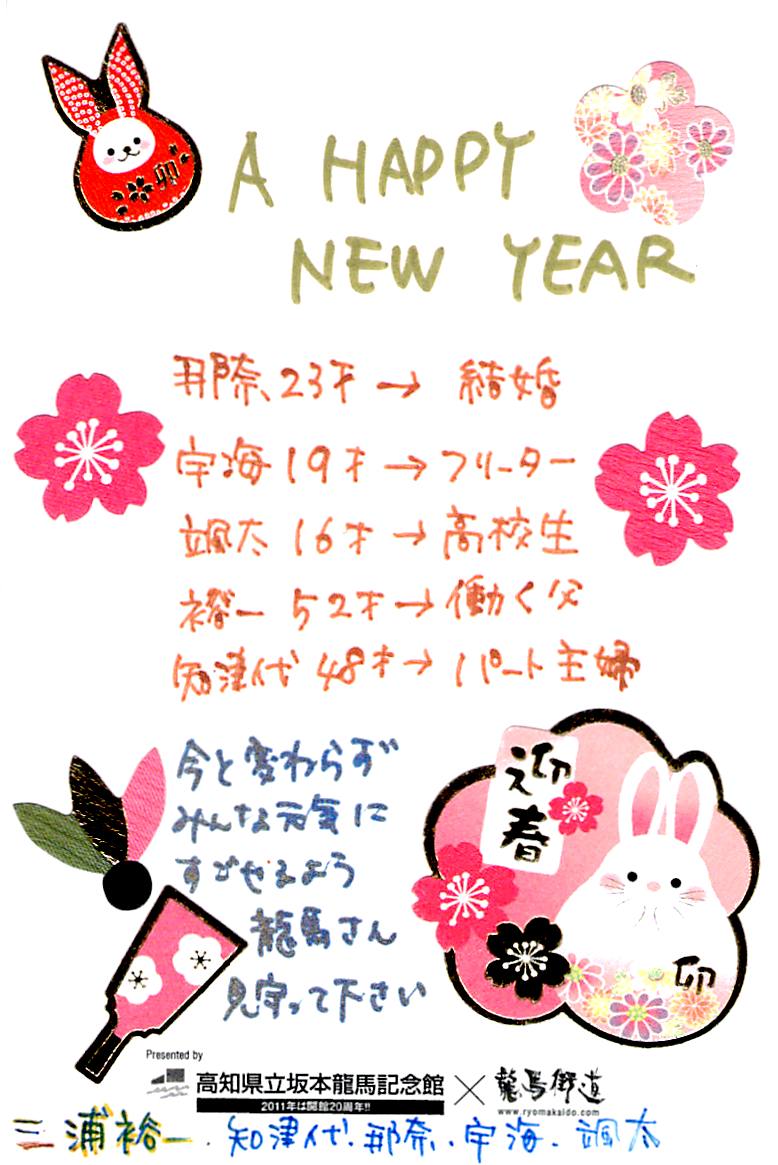 卯
A HAPPY
NEW YEAR
那奈 23才 → 結婚
宇海 19才 → フリーター
颯太 16才 → 高校生
裕一 52才 → 働く父
知津代 48才 → パート主婦
今と変わらず
みんな元気に
すごせるよう
龍馬さん
見守って下さい
迎春
卯
Presented by
高知県立坂本龍馬記念館 × 龍馬街道
2011年は開館20周年!!
www.ryomakaido.com
三浦裕一・知津代・那奈・宇海・颯太